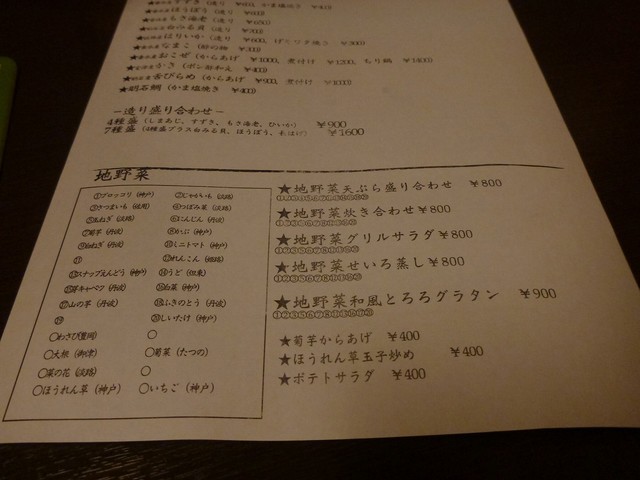 すずき（造り ￥
ほうぼう（造り ￥600）
もさ海老（造り ￥650）
白みる貝（造り ￥700）
はりいか（造り ￥600、げそワタ焼き ￥300）
なまこ（酢の物 ￥300）
おこぜ（からあげ ￥1000、煮付け ￥1200、ちり鍋 ￥1400）
かき（ポン酢和え ￥400）
舌びらめ（からあげ ￥900、煮付け ￥1000）
★明石鯛（かま塩焼き ￥400）
－造り盛り合わせ－
4種盛（しまあじ、すずき、もさ海老、ひいか） ￥900
7種盛（4種盛プラス白みる貝、ほうぼう、 ￥1600
地野菜
①ブロッコリ（神戸） ②じゃがいも（淡路）
③さつまいも ④つぼみ菜（淡路）
⑤玉ねぎ（淡路） ⑥にんじん（丹波）
⑦菊芋（丹波） ⑧かぶ（神戸）
⑨白ねぎ（丹波） ⑩ミニトマト（神戸）
⑪ ⑫れんこん（姫路）
⑬スナップえんどう（神戸） ⑭うど（但東）
⑮芽キャベツ（丹波） ⑯白菜（神戸）
⑰山の芋（丹波） ⑱ふきのとう（丹波）
⑲ ⑳しいたけ（神戸）
○わさび（豊岡） ○
○大根（御津） ○菊菜（たつの）
○菜の花（淡路） ○
○ほうれん草（神戸） ○いちご（神戸）
★地野菜天ぷら盛り合わせ ￥800
★地野菜炊き合わせ￥800
★地野菜グリルサラダ￥800
★地野菜せいろ蒸し￥800
★地野菜和風とろろグラタン ￥900
★菊芋からあげ ￥400
★ほうれん草玉子炒め ￥400
★ポテトサラダ ￥400